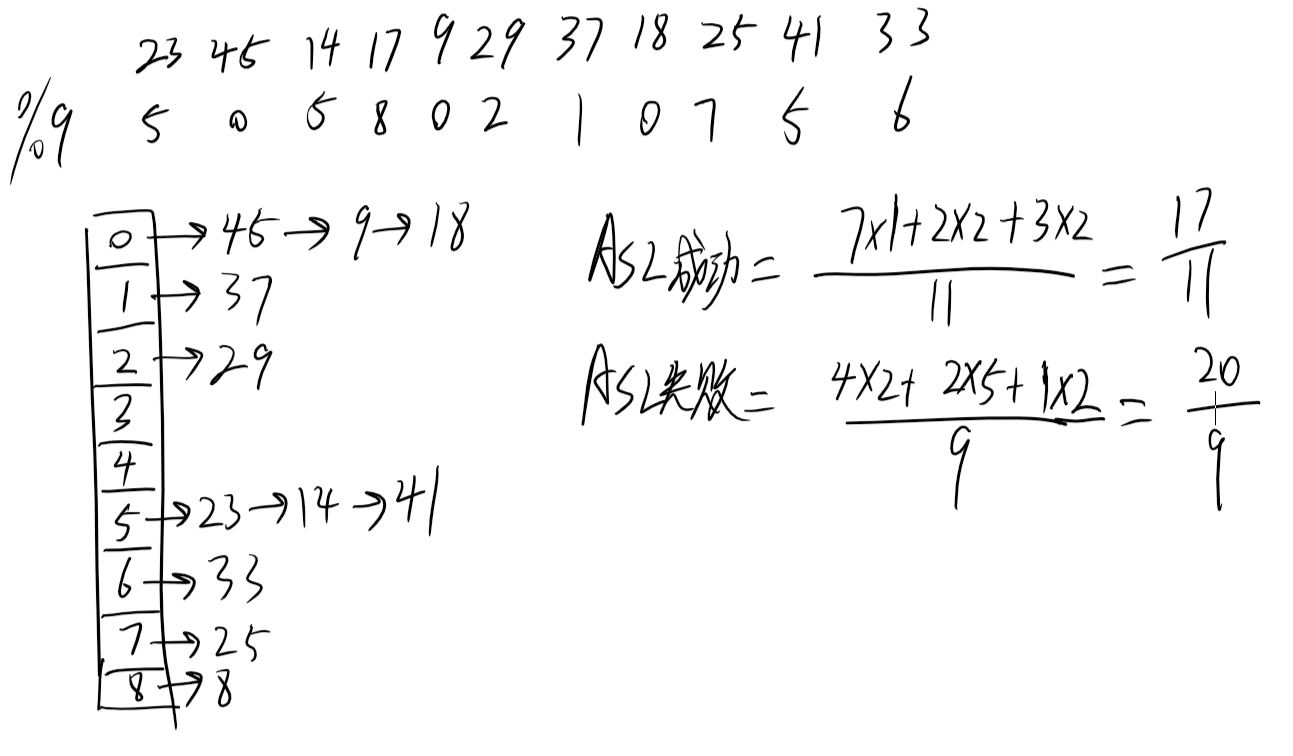 23 45 14 17 9 29 37 18 25 41 33
%9 5 0 5 8 0 2 1 0 7 5 6
0 → 45 → 9 → 18
1 → 37
2 → 29
3
4
5 → 23 → 14 → 41
6 → 33
7 → 25
8 → 8
ASL成功 = 7×1+2×2+3×2 / 11 = 17 / 11
ASL失败 = 4×2+2×5+1×2 / 9 = 20 / 9